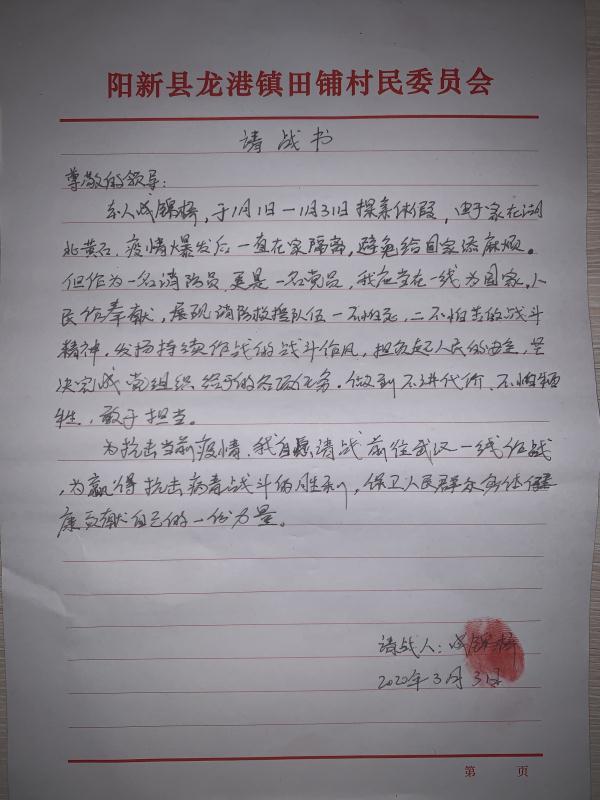 阳新县龙港镇田铺村民委员会
请战书
尊敬的领导：
本人成锦桥，于1月1日一1月31日探亲休假，由于家在湖
北黄石，疫情爆发后一直在家隔离，避免给国家添麻烦。
但作为一名消防员更是一名党员，我应当在一线为国家，人
民作奉献，展现消防救援队伍一不怕死，二不怕苦的战斗
精神，发扬持续作战的战斗作风，担负起人民的安全，坚
决完成党组织给予的各项任务。做到不讲代价、不怕牺
牲，敢于担当。
为抗击当前疫情，我自愿请战前往武汉一线作战
，为赢得抗击病毒战斗的胜利，保卫人民群众身体健
康贡献自己的一份力量。
请战人：成锦桥
2020年3月3日
第 页